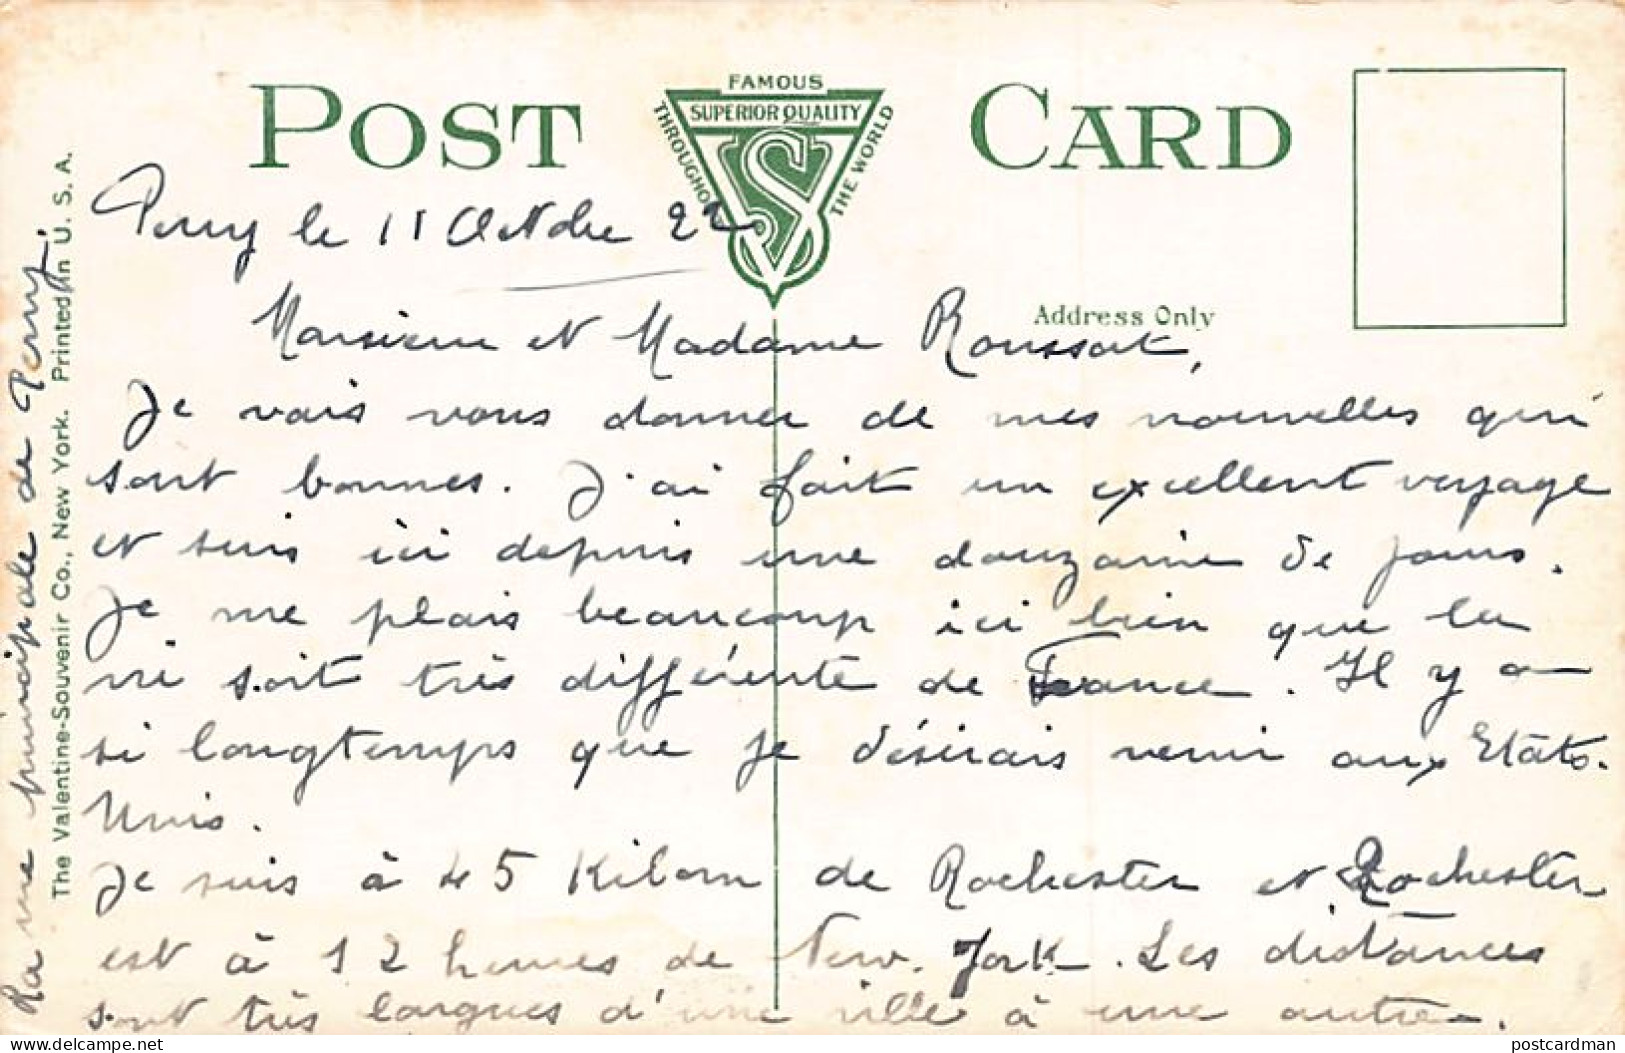 POST CARD
FAMOUS
SUPERIOR QUALITY
THROUGHOUT
THE WORLD
VS
Address Only
Perry le 11 Octobre 22
Monsieur et Madame Roussat,
Je vais vous donner de mes nouvelles qui
sont bonnes. J'ai fait un excellent voyage
et suis ici depuis une douzaine de jours.
Je me plais beaucoup ici bien que la
vie soit très différente de France. Il y a
si longtemps que je désirais venir aux Etats-
Unis.
Je suis à 45 Kilom de Rochester et Rochester
est à 12 heures de New-York. Les distances
sont très longues d'une ville à une autre.
La rue principale de Perry.
The Valentine-Souvenir Co., New York. Printed in U. S. A.
delcampe.net
postcardman